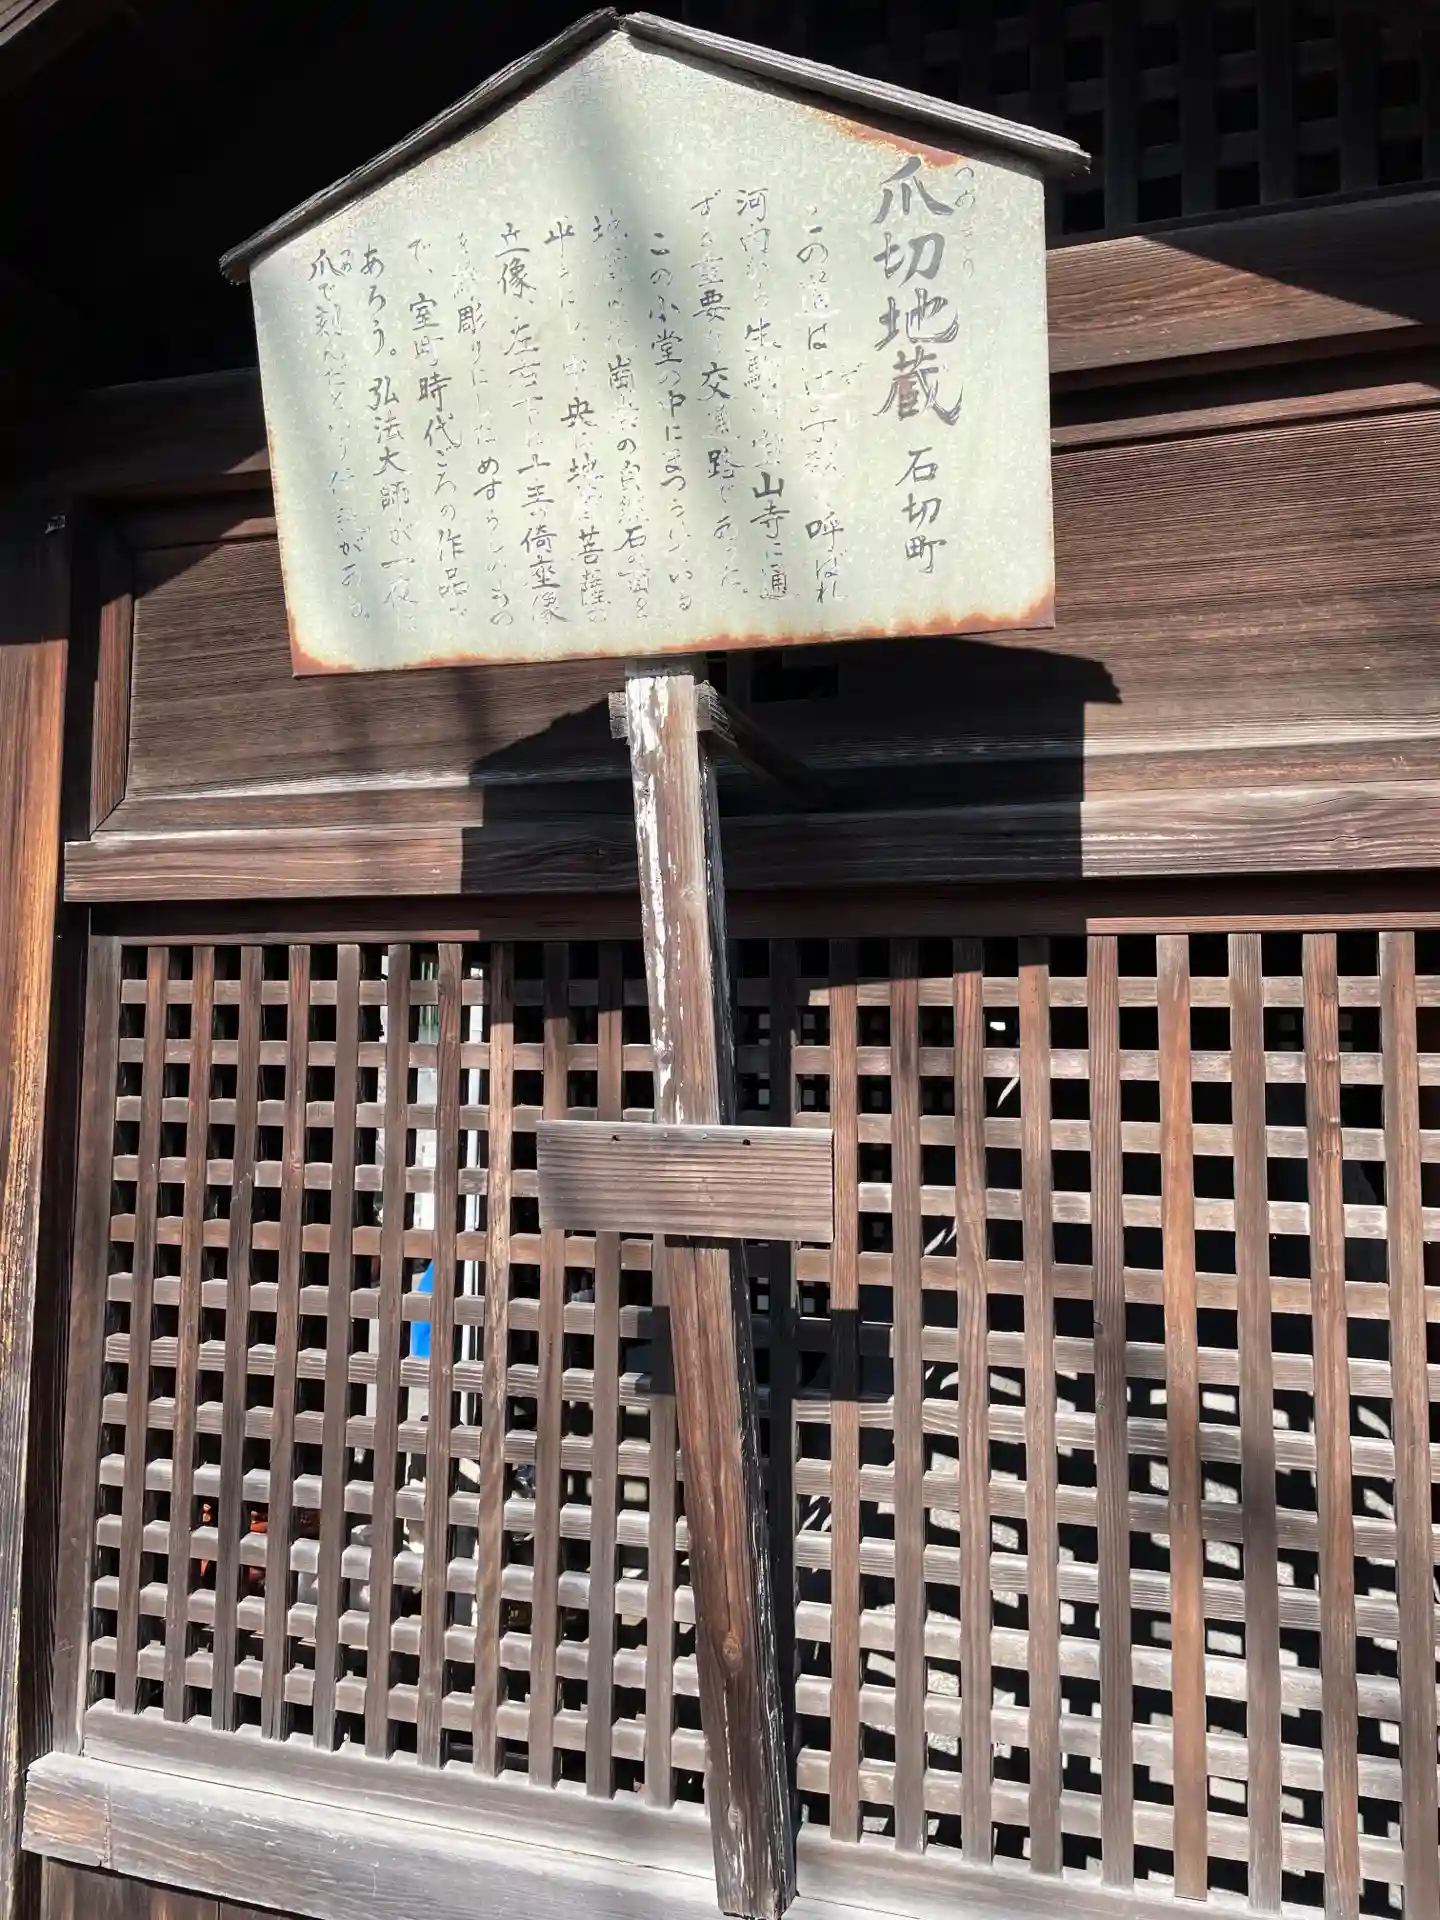 爪切地蔵 石切町
つめきり
この道は辻子越と呼ばれ
河内から生駒山宝山寺に通
ずる重要な交通路であった。
この小堂の中にまつられている
地蔵は花崗岩の自然石の面を
平らにし、中央に地蔵菩薩の
立像、左右下に十王の倚座像
を線彫りにしためずらしいもの
で、室町時代ごろの作品で
あろう。弘法大師が一夜に
爪で刻んだという伝説がある。
つめ